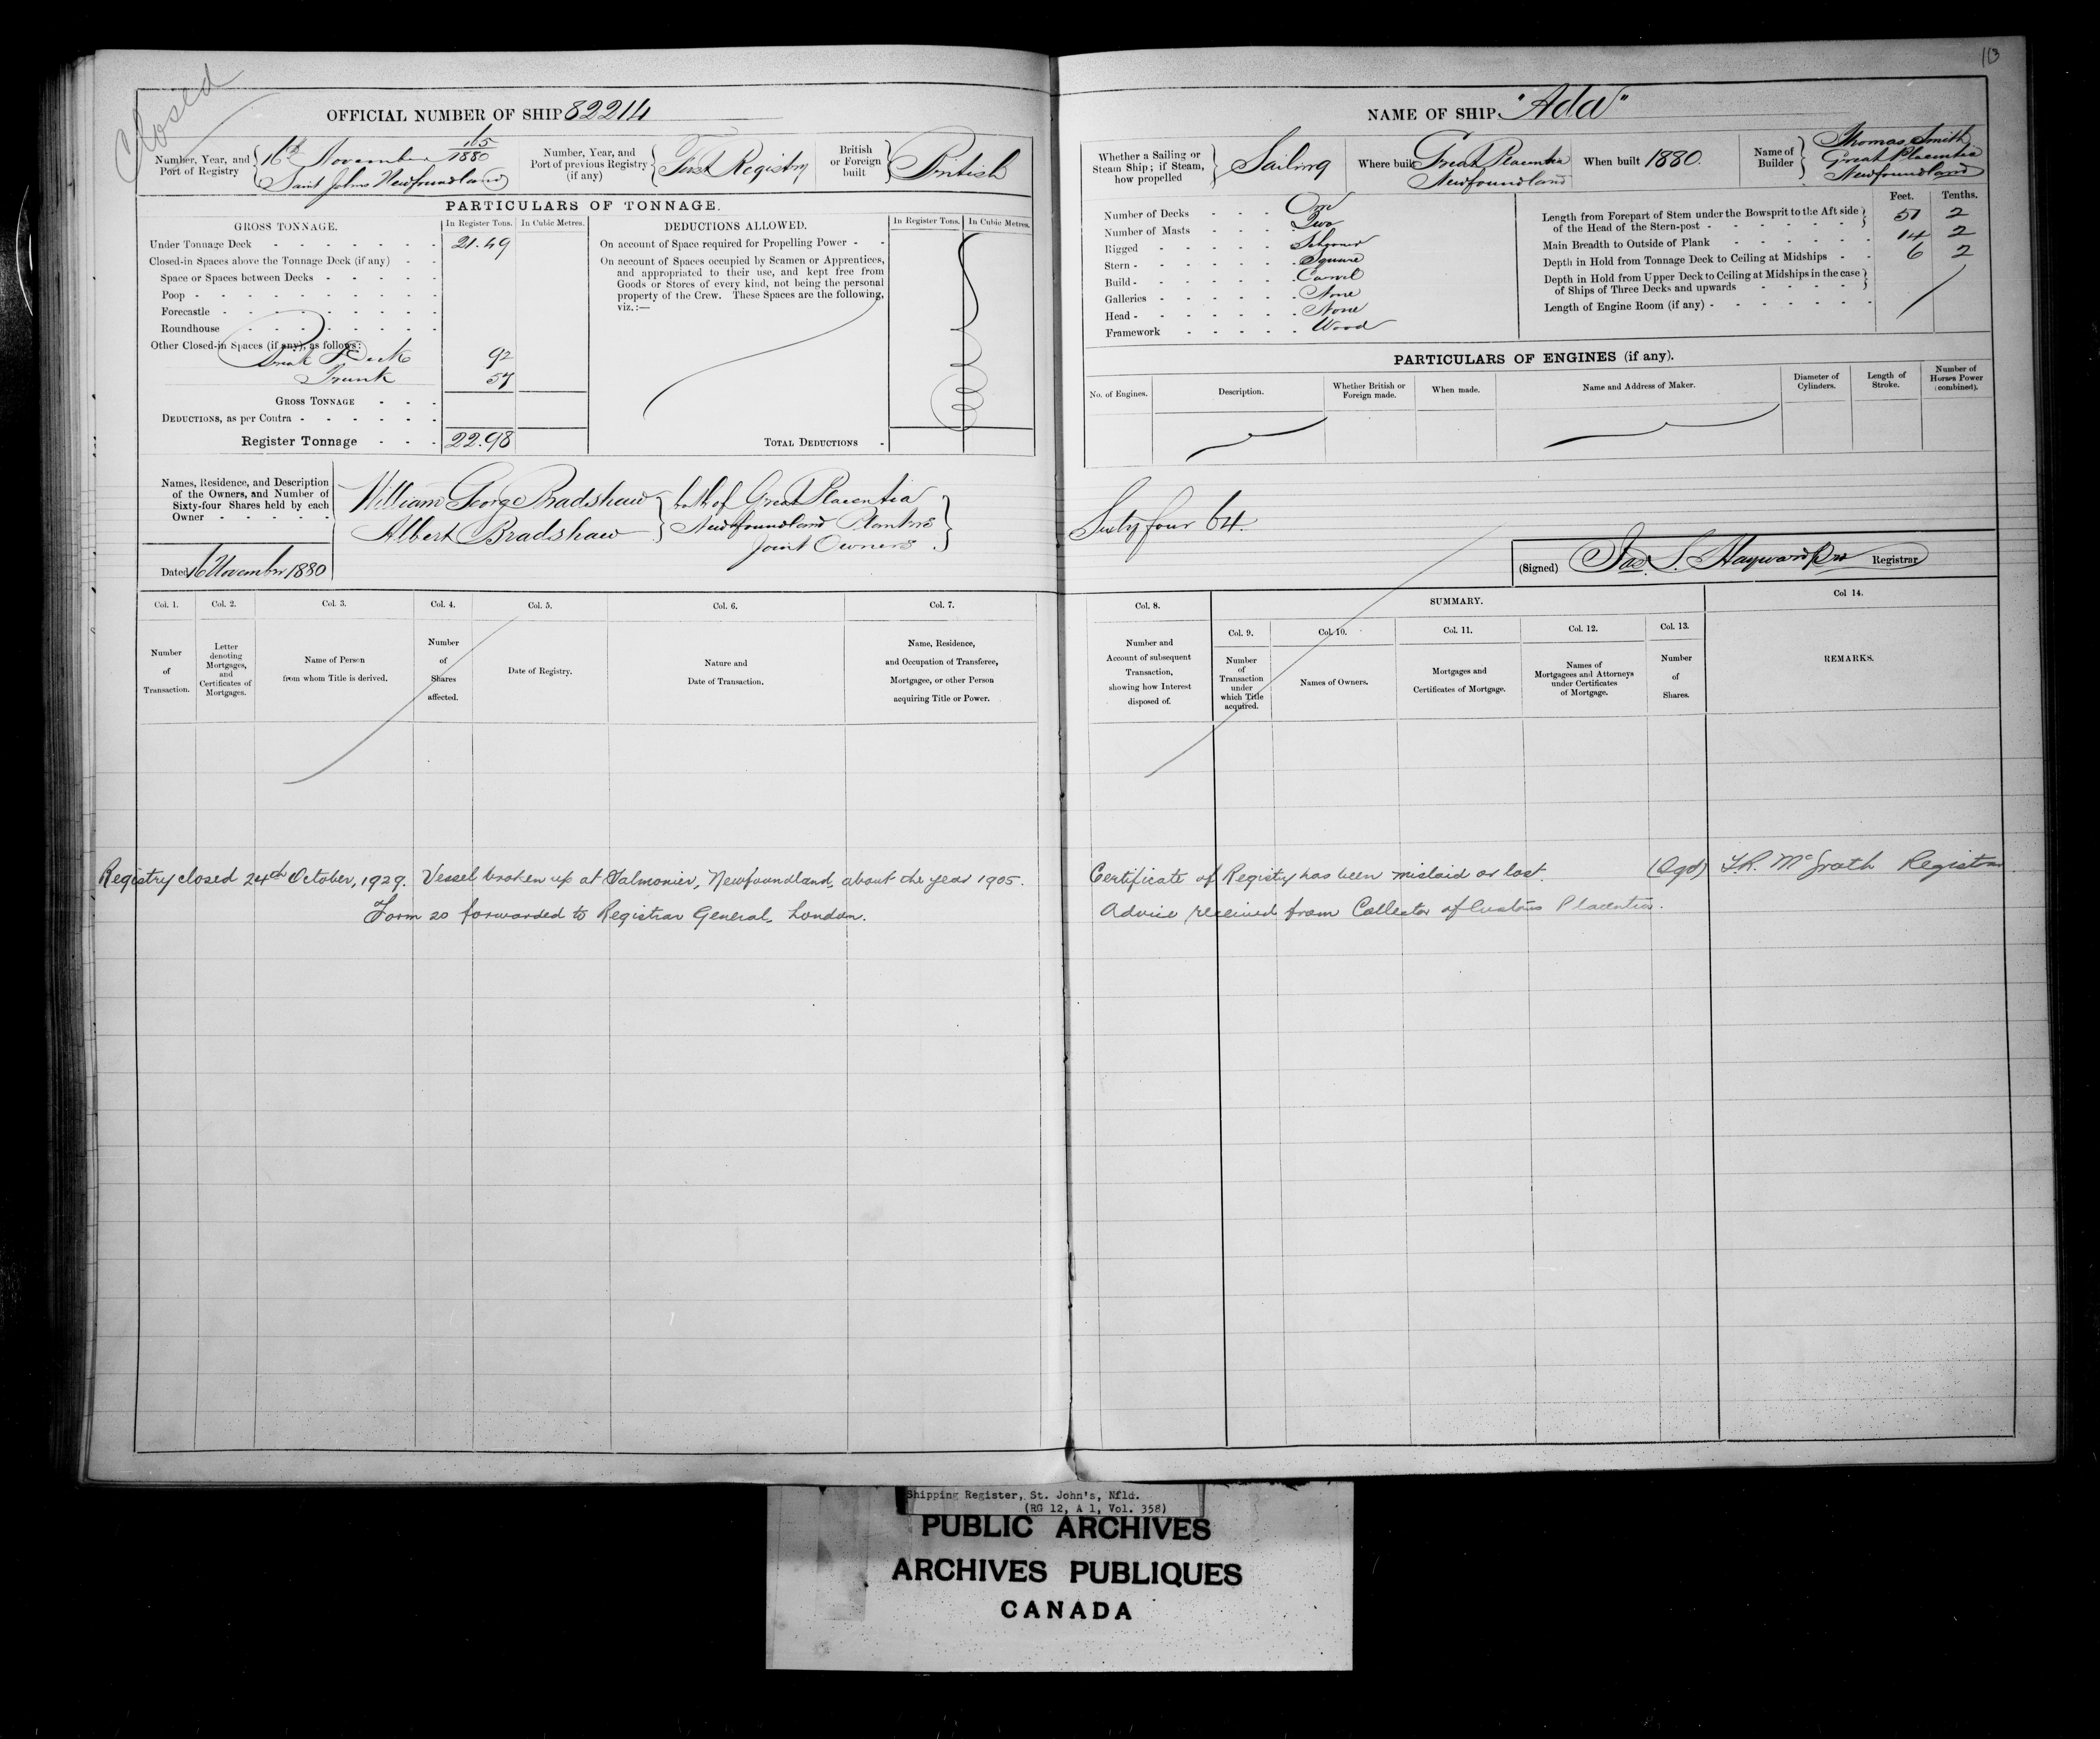 Closed
113
OFFICIAL NUMBER OF SHIP 82214
Number, Year, and
Port of Registry
16th November 165/1880
Saint Johns Newfoundland
Number, Year, and
Port of previous Registry
(if any)
First Registry
British
or Foreign
built
British
PARTICULARS OF TONNAGE.
GROSS TONNAGE.
In Register Tons.
In Cubic Metres.
Under Tonnage Deck - - - - - - - 21.49
Closed-in Spaces above the Tonnage Deck (if any) - -
Space or Spaces between Decks - - - - -
Poop - - - - - - - - -
Forecastle - - - - - - - -
Roundhouse - - - - - - -
Other Closed-in Spaces (if any), as follows:
Break Deck 92
Trunk 57
GROSS TONNAGE - - -
DEDUCTIONS, as per Contra - - - - - -
Register Tonnage - - - 22.98
DEDUCTIONS ALLOWED.
In Register Tons.
In Cubic Metres.
On account of Space required for Propelling Power - -
On account of Spaces occupied by Seamen or Apprentices,
and appropriated to their use, and kept free from
Goods or Stores of every kind, not being the personal
property of the Crew. These Spaces are the following,
viz.:—
TOTAL DEDUCTIONS -
Names, Residence, and Description
of the Owners, and Number of
Sixty-four Shares held by each
Owner - - - - -
William George Bradshaw
Albert Bradshaw
both of Great Placentia
Newfoundland Planters
Joint Owners
Dated 16 November 1880
Col. 1.
Number
of
Transaction.
Col. 2.
Letter
denoting
Mortgages,
and
Certificates of
Mortgages.
Col. 3.
Name of Person
from whom Title is derived.
Col. 4.
Number
of
Shares
affected.
Col. 5.
Date of Registry.
Col. 6.
Nature and
Date of Transaction.
Col. 7.
Name, Residence,
and Occupation of Transferee,
Mortgagee, or other Person
acquiring Title or Power.
Registry closed 24th October, 1929. Vessel broken up at Salmonier, Newfoundland, about the year 1905.
Form 20 forwarded to Registrar General, London.
NAME OF SHIP "Ada"
Whether a Sailing or
Steam Ship; if Steam,
how propelled
Sailing
Where built
Great Placentia
Newfoundland
When built 1880.
Name of
Builder
Thomas Smith
Great Placentia
Newfoundland
Number of Decks - - - One
Number of Masts - - - Two
Rigged - - - - - Schooner
Stern - - - - - - Square
Build - - - - - - Carvel
Galleries - - - - - None
Head - - - - - - None
Framework - - - - Wood
Feet.
Tenths.
Length from Forepart of Stem under the Bowsprit to the Aft side
of the Head of the Stern-post - - - - - - 51 2
Main Breadth to Outside of Plank - - - - - - 14 2
Depth in Hold from Tonnage Deck to Ceiling at Midships - - 6 2
Depth in Hold from Upper Deck to Ceiling at Midships in the case
of Ships of Three Decks and upwards - - - - -
Length of Engine Room (if any) - - - - - - -
PARTICULARS OF ENGINES (if any).
No. of Engines.
Description.
Whether British or
Foreign made.
When made.
Name and Address of Maker.
Diameter of
Cylinders.
Length of
Stroke.
Number of
Horses Power
(combined).
Sixty four 64.
(Signed) Jas. S. Hayward Registrar
Col. 8.
Number and
Account of subsequent
Transaction,
showing how Interest
disposed of.
SUMMARY.
Col. 9.
Number
of
Transaction
under
which Title
acquired.
Col. 10.
Names of Owners.
Col. 11.
Mortgages and
Certificates of Mortgage.
Col. 12.
Names of
Mortgagees and Attorneys
under Certificates
of Mortgage.
Col. 13.
Number
of
Shares.
Col 14.
REMARKS.
Certificate of Registry has been mislaid or lost. (Sgd) McGrath Registrar
Advice received from Collector of Customs Placentia.
Shipping Register, St. John's, Nfld.
(RG 12, A 1, Vol. 358)
PUBLIC ARCHIVES
ARCHIVES PUBLIQUES
CANADA